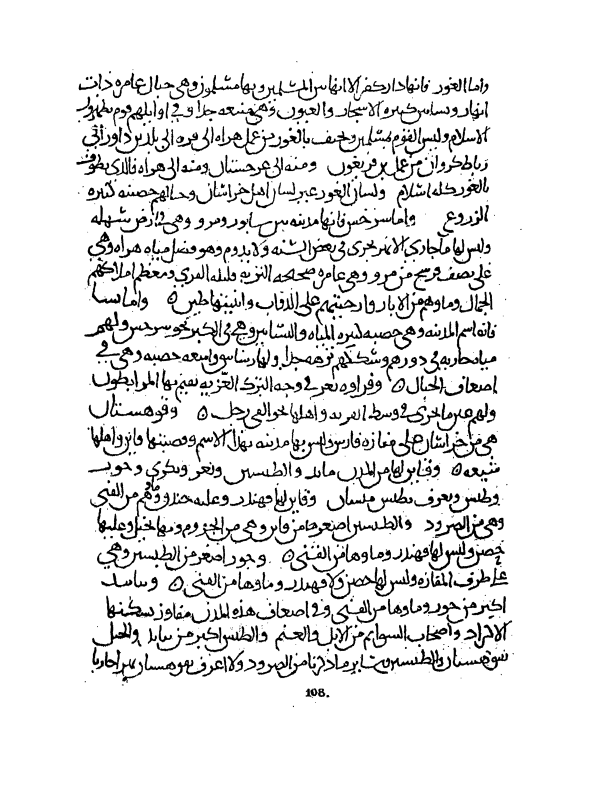 واما الغور فانها دار كفر الا انها من المسلمين وبها مسلمون وهي جبال عامره ذات
انهار وبساتين كثيره الاشجار والعيون وهي منيعه جدا وفي اوايلهم قوم يظهرون
الاسلام وليس القوم بمسلمين ويحيف بالغور من عمل هراه الى فره الى بلدين داور الى
رباط كروان من عمل بن فريغون ومنه الى غرجستان ومنه الى هراه فالذي يطوف
بالغور كله اسلام ولسان الغور غير لسان اهل خراسان وجبالهم حصينه كثيره
الزروع واما سرخس فانها مدينه بين نيسابور ومرو وهي في ارض سهله
وليس لها ما جاري الا نهر يجري في بعض السنه ولا يدوم وهو فضل مياه هراه وهي
على نصف فرسخ من مرو وهي عامره صحيحه التربه وقليله القري ومعظم املاكهم
الجمال وماوهم من الابار وارحيتهم على الدواب وابنيتها طين ٥ واما نسا
فانه اسم المدينه وهي خصبه كثيره المياه والبساتين وهي في الكبر نحو سرخس ولهم
مياه جاريه في دورهم وسككهم نزهه جدا ولها رساتيق واسعه خصبه وهي في
اضعاف الجبال ٥ وفراوه ثغر في وجه الترك الغزيه يقيم بها المرابطون
ولهم عين ماء تجري في وسط القريه واهلها نحو الفي رجل ٥ وقوهستان
هي من خراسان على مفازه فارس وليس بها مدينه بهذا الاسم وقصبتها قاين واهلها
منيعه ٥ وقاين لها من المدن ينابد والطبسين وتعرف بكري وخور
وطبس ويعرف بطبس مسينان وقاين لها قهندز وعليه خندق وماوهم من القني
وهي من الصرود والطبسين اصغر من قاين وهي من الجروم وبها نخيل وعليها
حصن وليس لها قهندز وماوها من القني ٥ وخور اصغر من الطبسين وهي
على طرف المفازه وليس لها حصن ولا قهندز وماوها من القني ٥ وينابد
اكبر من خور وماوها من القني وفي اضعاف هذه المدن مفاوز سكنها
الاكراد واصحاب السوايم من الابل والغنم والطبس اكبر من ينابد والنخيل
بقوهستان والطبسين وساير ما ذكرنا من الصرود ولا اعرف بقوهستان نهرا جاريا
108.